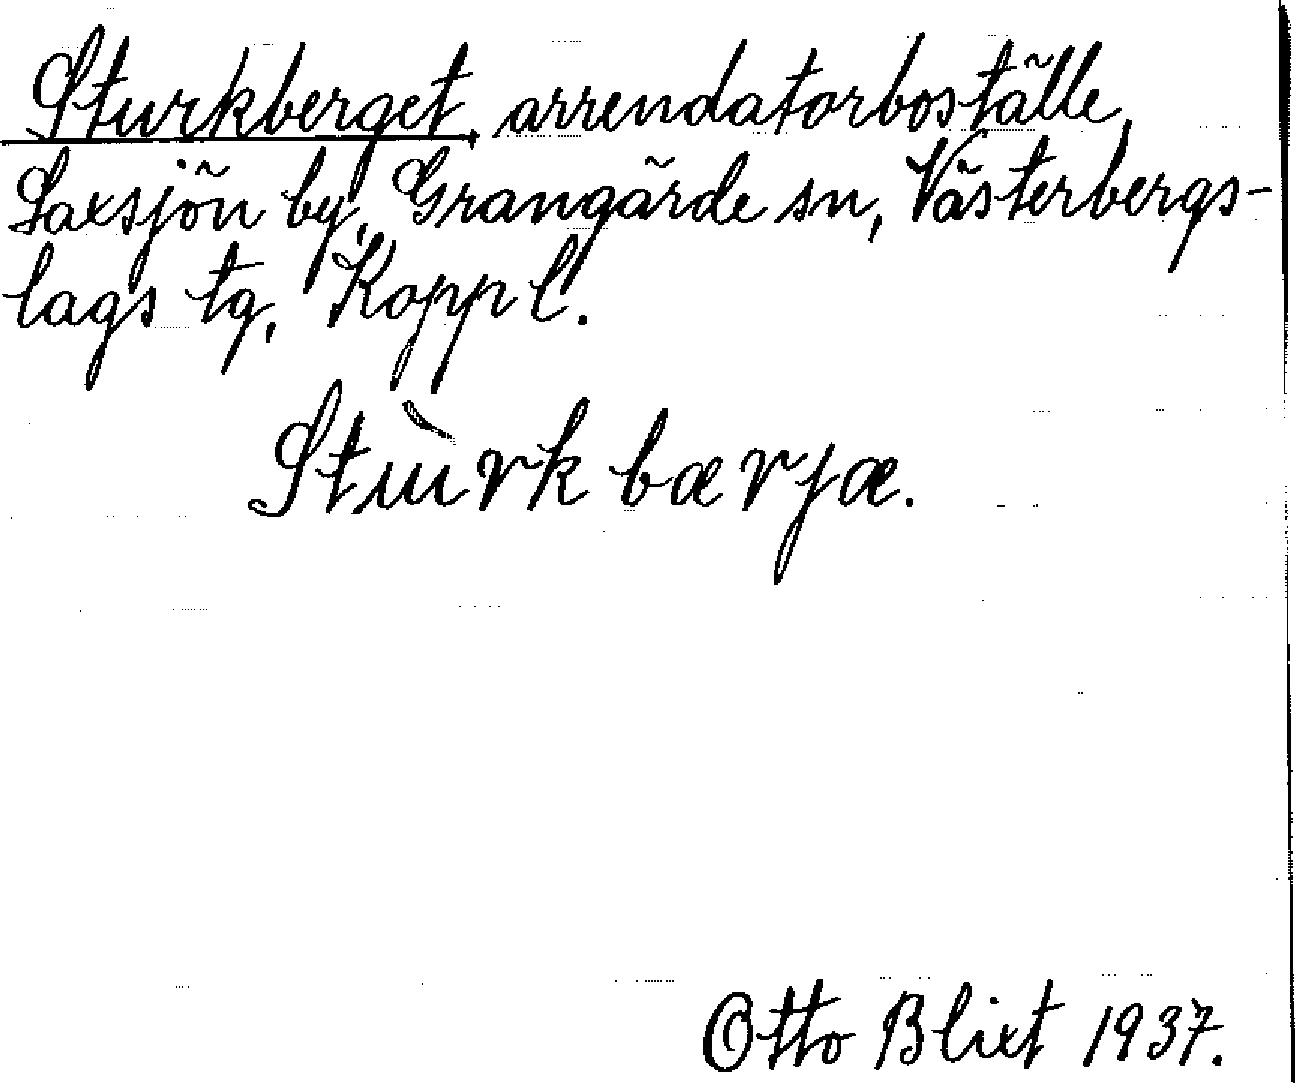 Sturkberget, arrendatorboställe,
Saxsjön by, Grangärde sn, Västerbergs-
lags tg, Kopp l.
Stùrkbærjæ.
Otto Blixt 1937.